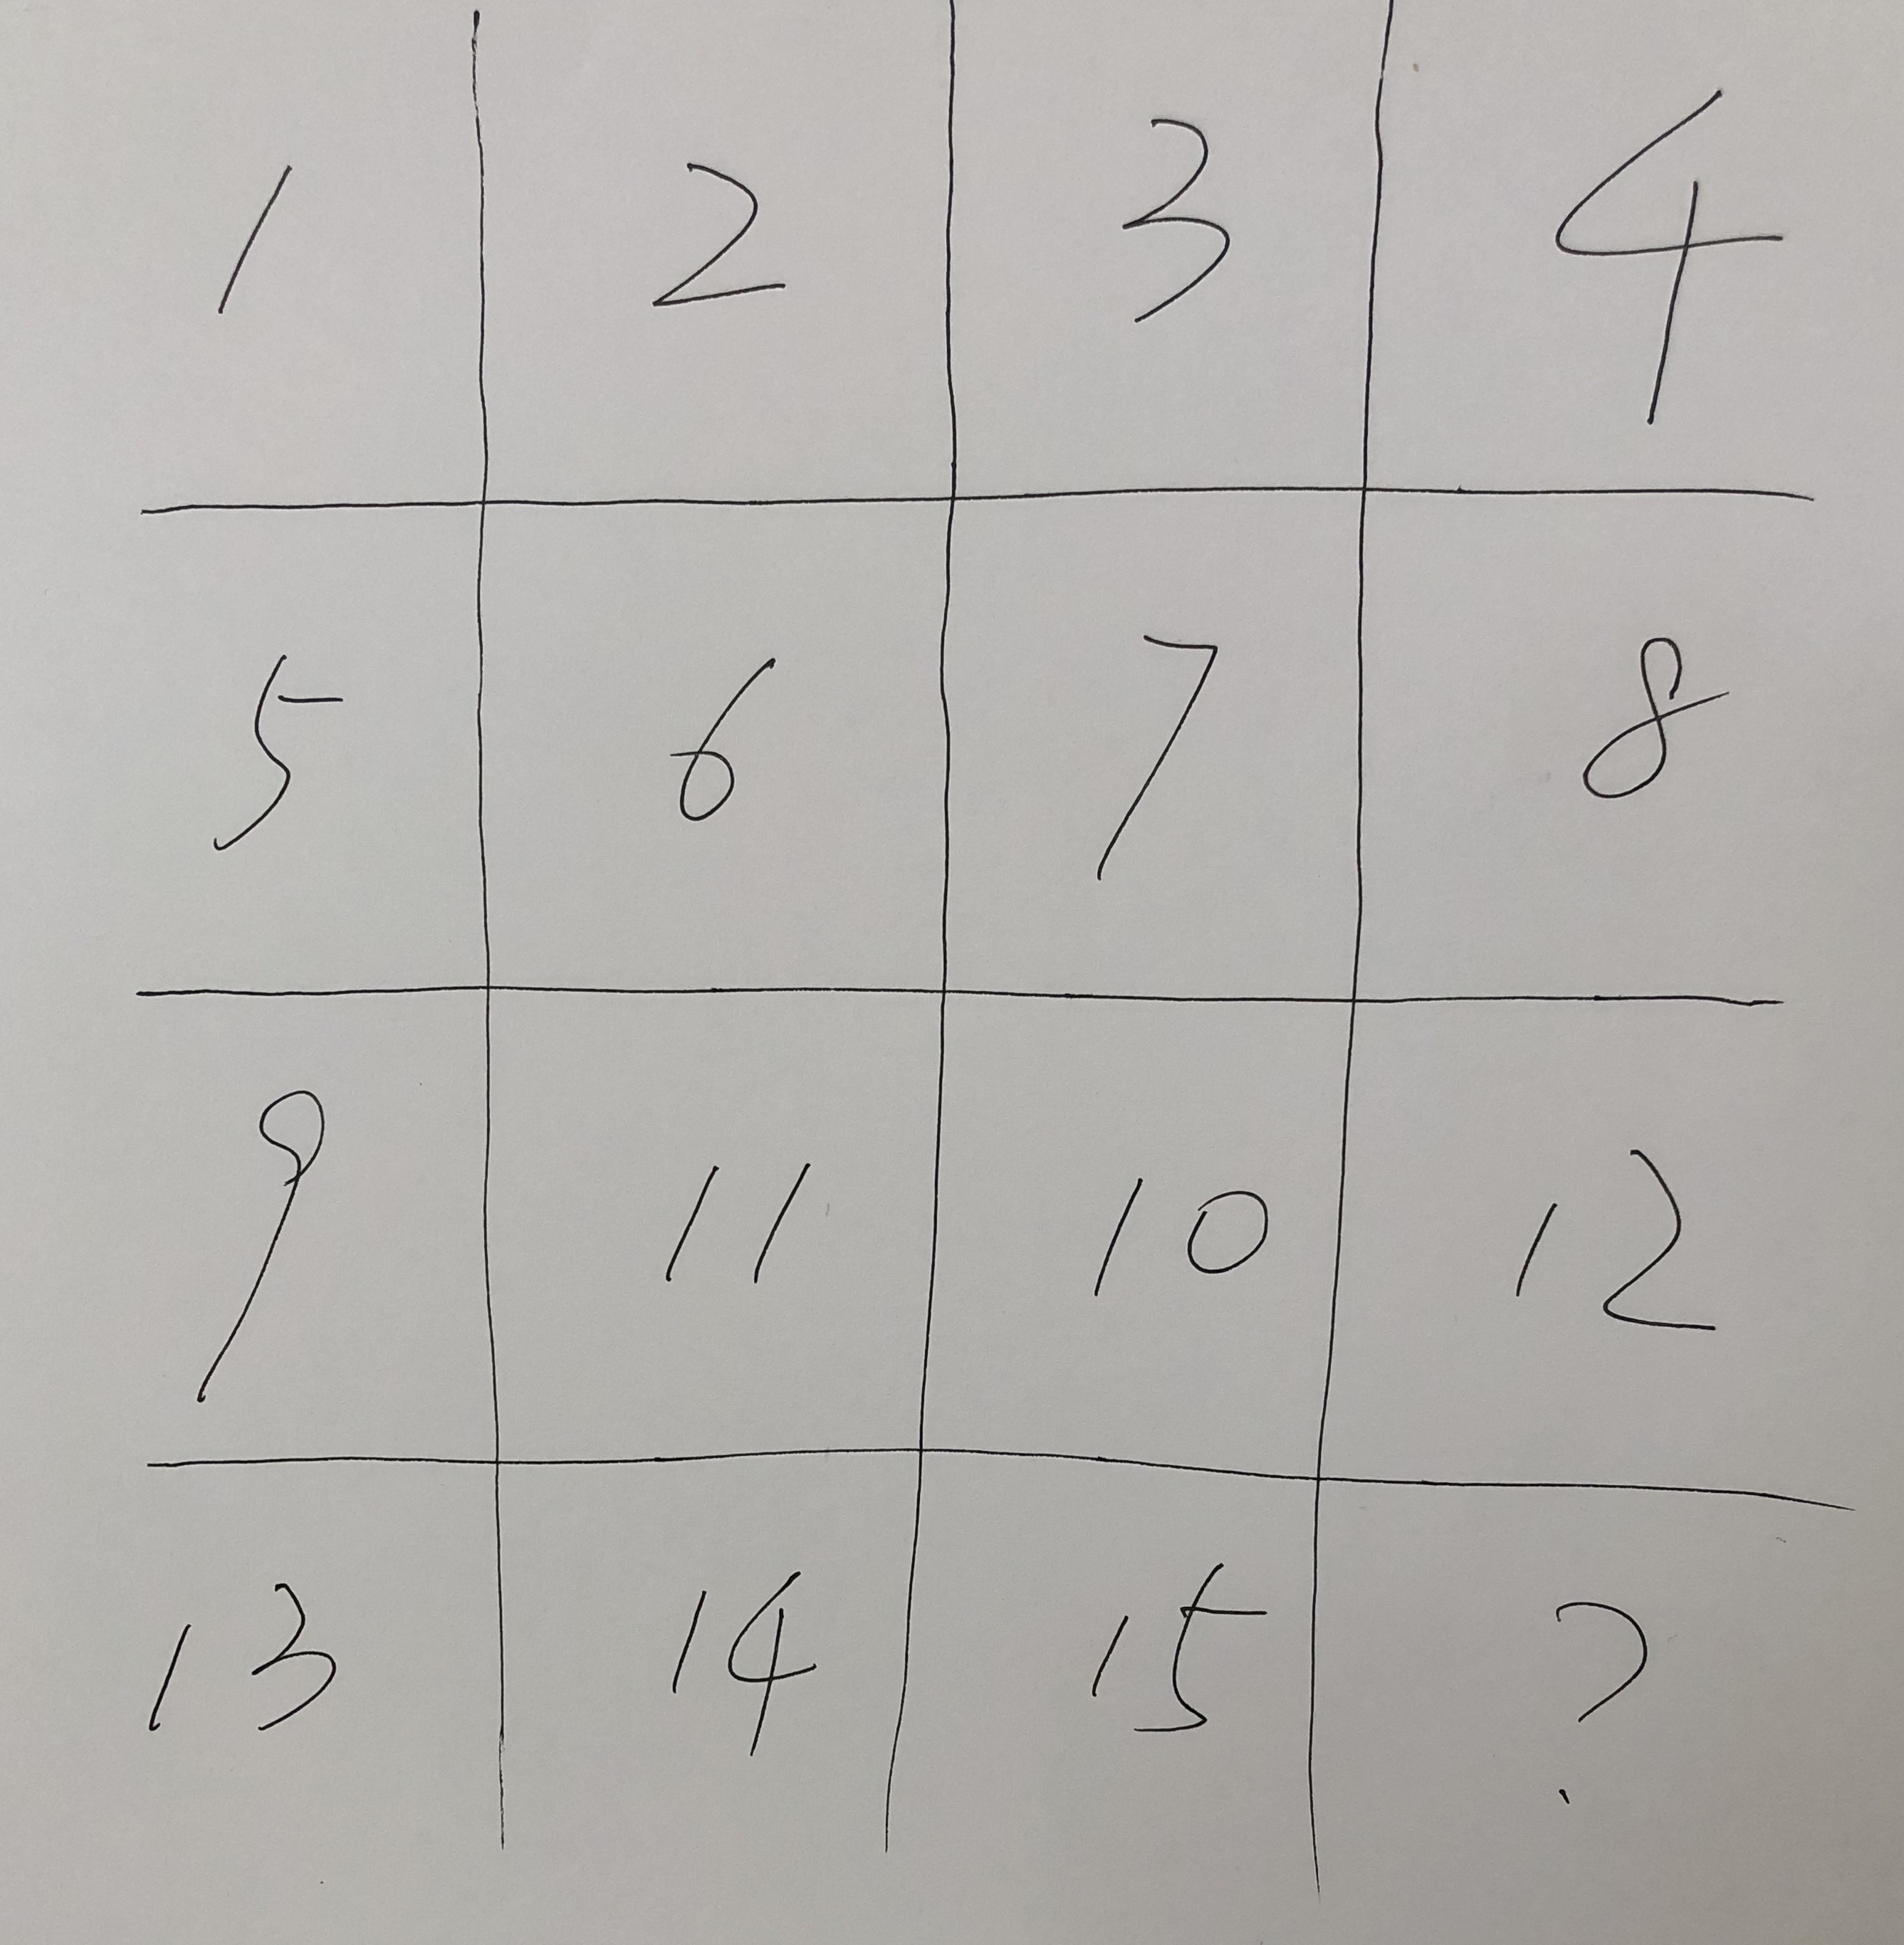 1 2 3 4
5 6 7 8
9 11 10 12
13 14 15 ?